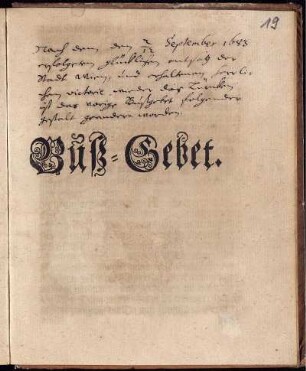 19
Nach dem, den 2/12 September 1683
erfolgten glücklichen entsatz der
Stadt Wien, und erhaltenen herrli-
chen victorie wieder das Türcken
ist das vorige Bußgebet folgender
gestalt geendert worden.
Buß=Gebet.